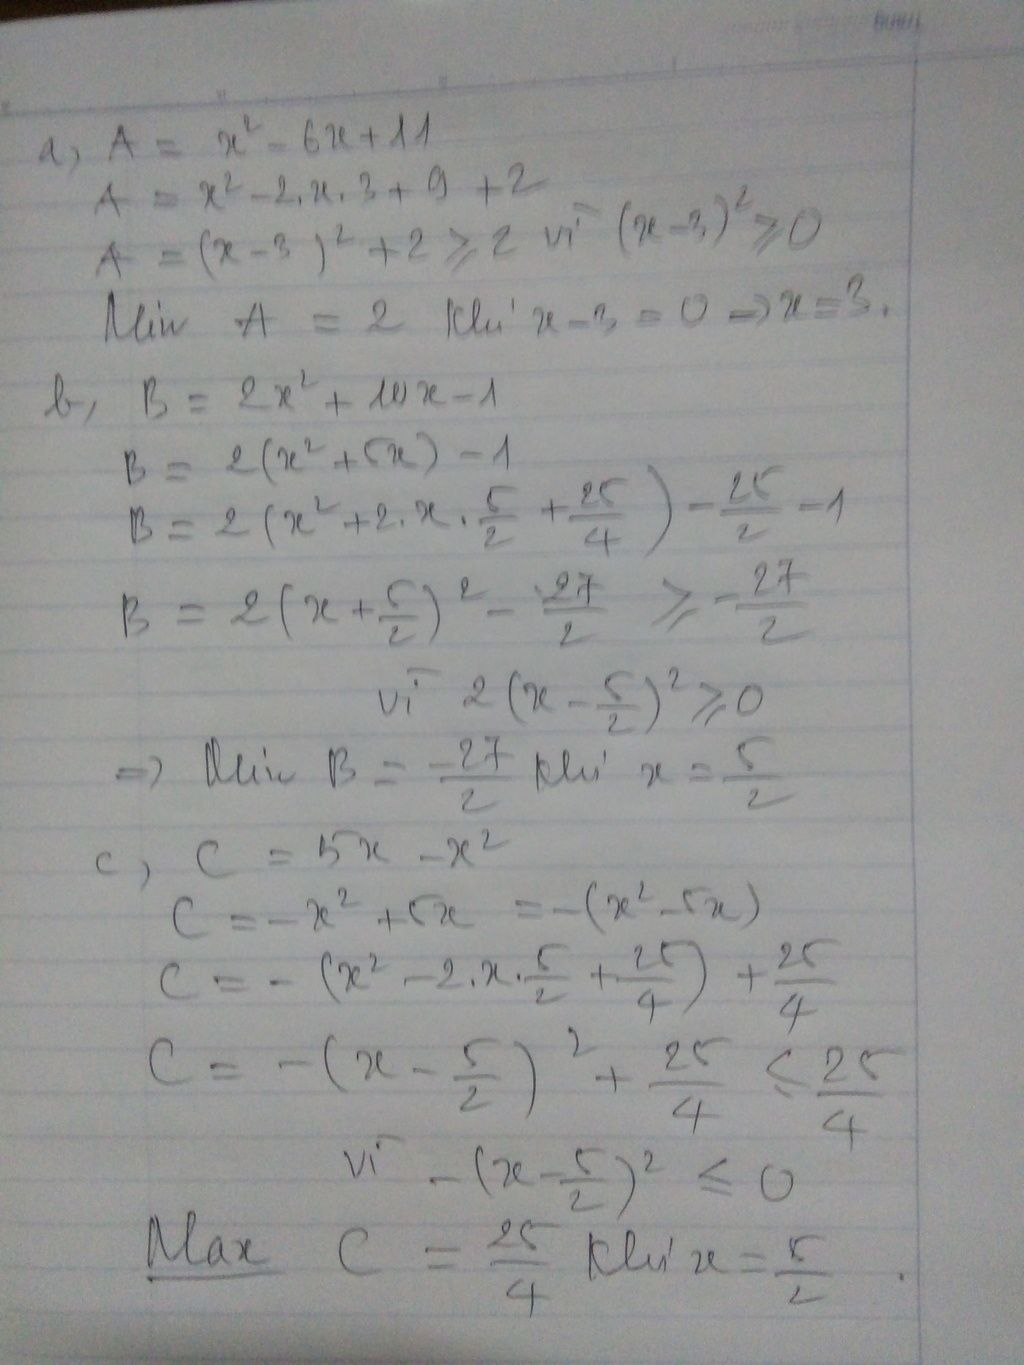 a, A = x² - 6x + 11
A = x² - 2.x.3 + 9 + 2
A = (x - 3)² + 2 ⩾ 2 vì (x - 3)² ⩾ 0
Min A = 2 khi x - 3 = 0 => x = 3.
b, B = 2x² + 10x - 1
B = 2(x² + 5x) - 1
B = 2(x² + 2.x.5/2 + 25/4) - 25/2 - 1
B = 2(x + 5/2)² - 27/2 ⩾ -27/2
vì 2(x - 5/2)² ⩾ 0
=> Min B = -27/2 khi x = 5/2
c, C = 5x - x²
C = -x² + 5x = -(x² - 5x)
C = -(x² - 2.x.5/2 + 25/4) + 25/4
C = -(x - 5/2)² + 25/4 ≤ 25/4
vì -(x - 5/2)² ≤ 0
Max C = 25/4 khi x = 5/2.